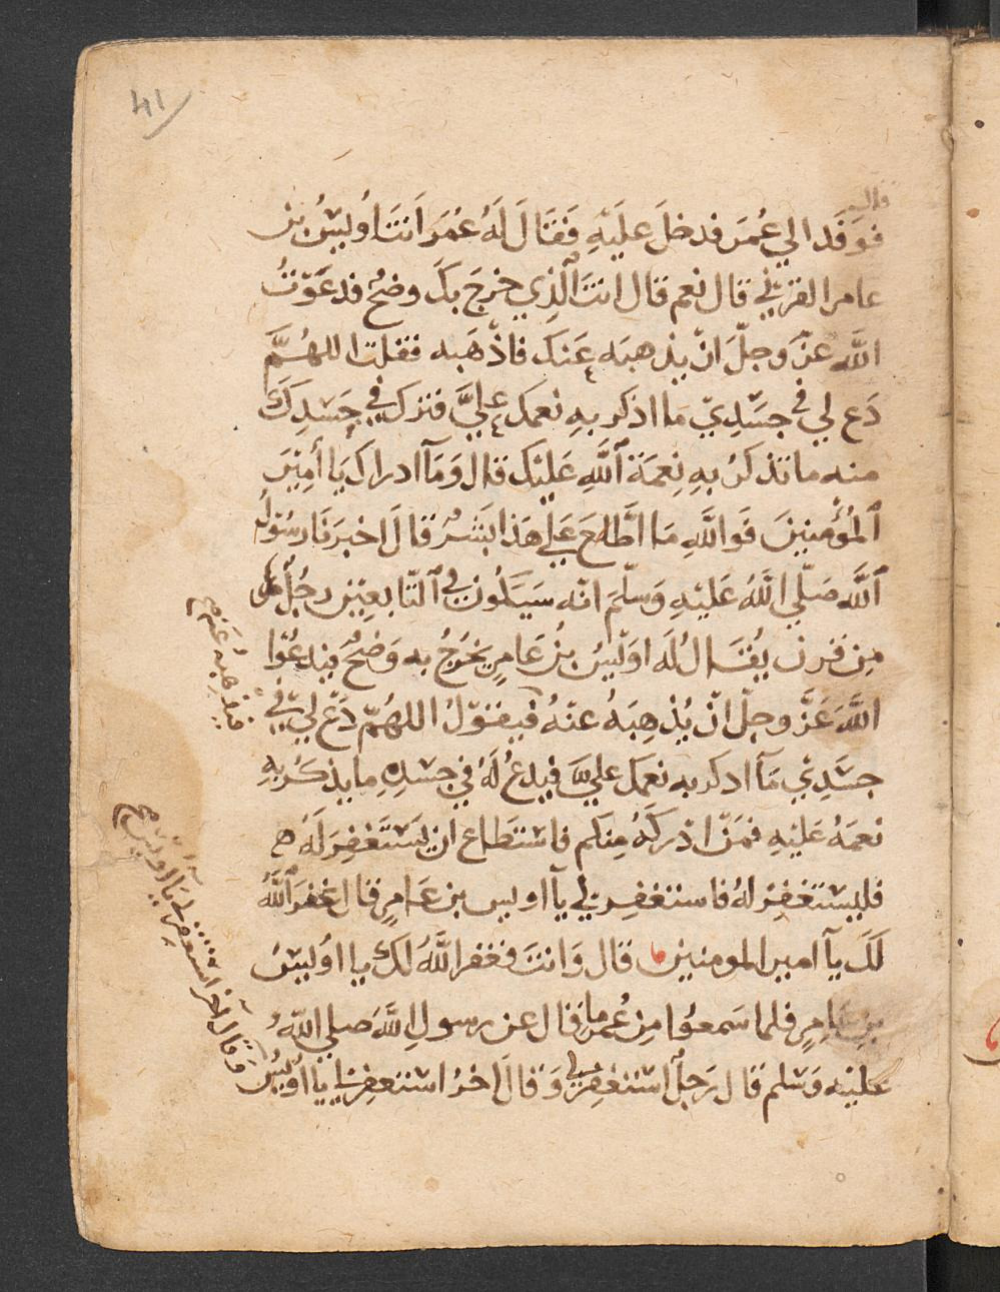 41
فوفد الي عُمَر فدخل عليه فقال له عُمَر اَنتَ اُويسُ بن
عامر القرني قال نعم قال انتَ الَّذِي خرجَ بكَ وضحٌ فدعَوْتُ
اللَّه عزّ وجلّ ان يذهبَه عَنك فاذْهَبه فقلت اللهُمَّ
دَع لي في جسَدِيْ ما اذكر بهِ نعمك عليَّ فترك في جَسدِكَ
منه ما تذكرُ بهِ نِعمَةَ اللَّهِ عَليْك قال وَمَآ ادراك يَا أمِيْرَ
المُؤمنِينَ فَواللَّهِ مَا اطَّلَعَ عَلي هَذا بَشَرٌ قالَ اخبَرَنَا رسُولُ
اللَّه صَلّي اللَّهُ عَليْهِ وَسَلّمَ انّه سَيَكُون في التّابعِيْنَ رجُلٌ
مِن قرن يُقَالُ لَه اوَيْسُ بنُ عَامرٍ يَخرُجُ به وَضحٌ فيدعُوْا
اللَّهَ عَزَّ وجلّ انْ يُذهِبَهُ عنْهُ فيقوْلُ اللهُمّ دَعْ لي في
جسَدِيْ مَآ اذكر به نعمك عليَّ فيدعُ لَهُ في جسَدِهِ ما يذكرُ بِهِ
نعمَهُ عَليْهِ فمَنْ ادْركَهُ مِنكم فاسْتطَاع ان يَسْتَغْفِرَ لَهُ
فليستغْفِرْ لهُ فاستغفِر لي يآ اويس بن عَامرٍ قال غفرَ اللَّهُ
لَكَ يآ امير المومنين قال وَانتَ فغفر اللَّهُ لكَ يا اُويسُ
بن عامِرٍ فلما سَمعُوا مِن عُمر ما قال عن رسولِ اللَّه صلي اللَّهُ
عليْه وَسَلم قال رَجلٌ استغفِر لي وَقالَ اخرُ استغفِر لي يا اُويْسُ
فيُذهِبهُ عَنهُ
وَقالَ آخر استغفِر لي يَآ اُويْس